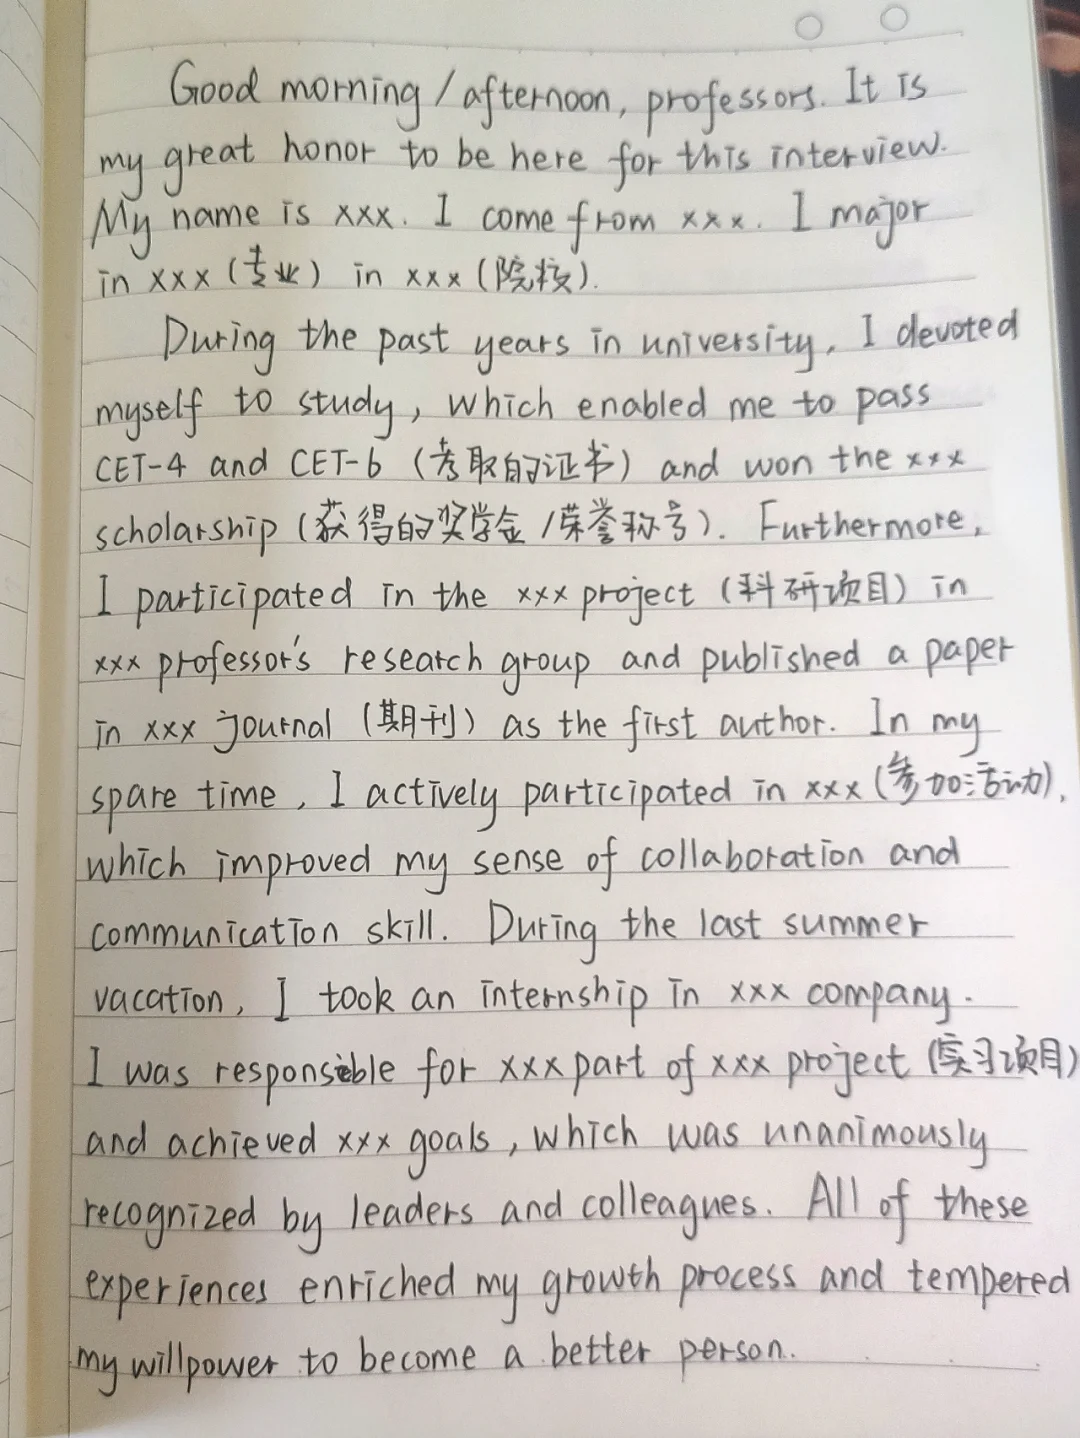 Good morning / afternoon, professors. It is
my great honor to be here for this interview.
My name is xxx. I come from xxx. I major
in xxx (专业) in xxx (院校).
During the past years in university, I devoted
myself to study, which enabled me to pass
CET-4 and CET-6 (考取的证书) and won the xxx
scholarship (获得的奖学金/荣誉称号). Furthermore,
I participated in the xxx project (科研项目) in
xxx professor's research group and published a paper
in xxx journal (期刊) as the first author. In my
spare time, I actively participated in xxx (参加活动),
which improved my sense of collaboration and
communication skill. During the last summer
vacation, I took an internship in xxx company.
I was responsible for xxx part of xxx project (实习项目)
and achieved xxx goals, which was unanimously
recognized by leaders and colleagues. All of these
experiences enriched my growth process and tempered
my willpower to become a better person.